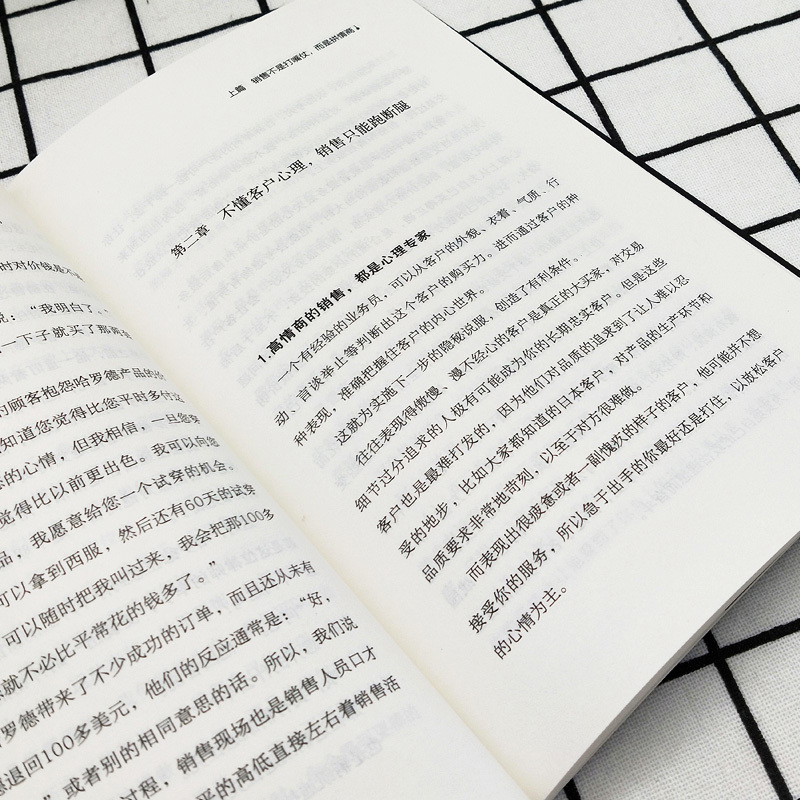 时对价钱是不
说：“我明白了
一下子就买了那
的顾客抱怨哈罗德产品的
知道您觉得比您平时多付
的心情，但我相信，一旦您穿
觉得比以前更出色。我可以向您
品，我愿意给您一个试穿的机会。
可以拿到西服，然后还有60天的试穿
可以随时把我叫过来，我会把那100多
您就不必比平常花的钱多了。”
哈罗德带来了不少成功的订单，而且还从未有
愿退回100多美元，他们的反应通常是：“好，
”或者别的相同意思的话。所以，我们说
过程，销售现场也是销售人员口才
平的高低直接左右着销售活
上篇 销售不是打嘴仗，而是拼情商
第二章 不懂客户心理，销售只能跑断腿
1.高情商的销售，都是心理专家
一个有经验的业务员，可以从客户的外貌、衣着、气质、行
动、言谈举止等判断出这个客户的购买力。进而通过客户的种
种表现，准确把握住客户的内心世界。
这就为实施下一步的隐秘说服，创造了有利条件。
往往表现得傲慢、漫不经心的客户是真正的大买家，对交易
细节过分追求的人极有可能成为你的长期忠实客户。但是这些
客户也是最难打发的，因为他们对品质的追求到了让人难以忍
受的地步，比如大家都知道的日本客户，对产品的生产环节和
品质要求非常地苛刻，以至于对方很难做。
而表现出很疲惫或者一副愧疚的样子的客户，他可能并不想
接受你的服务，所以急于出手的你最好还是打住，以放松客户
的心情为主。